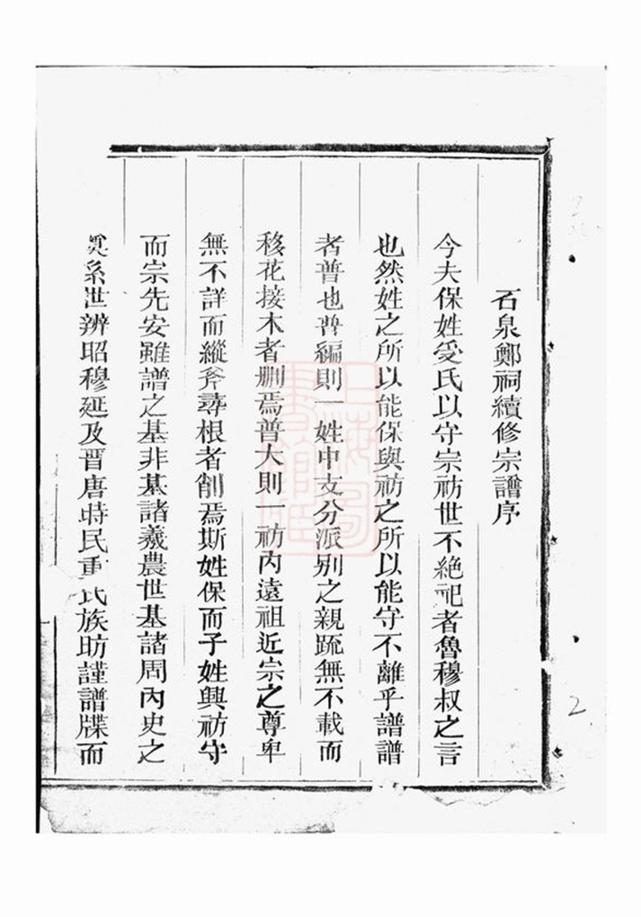 石泉鄭祠續修宗譜序
今夫保姓受氏以守宗祊世不絶祀者魯穆叔之言
也然姓之所以能保與祊之所以能守不離乎譜譜
者普也普編則一姓中支分派别之親疏無不載而
移花接木者删焉普大則一祊内遠祖近宗之尊卑
無不詳而縱斧尋根者削焉斯姓保而子姓興祊守
而宗先安雖譜之基非基諸羲農世基諸周内史之
奠系世辨昭穆延及晋唐時民重氏族昉謹譜牒而
2